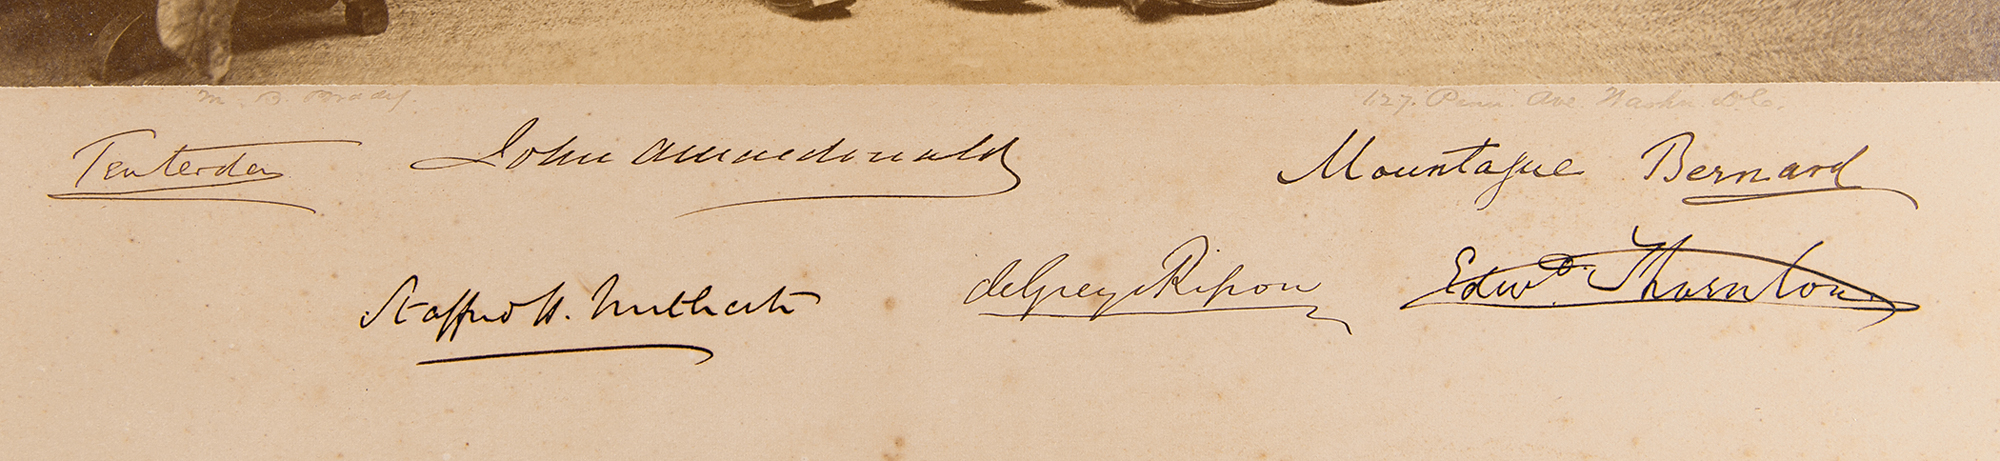 M. B. Brady. 127. Penn. Ave. Washn. D.C.
Tenterden John A Macdonald Mountague Bernard
Stafford H. Northcote de Grey & Ripon Edwd. Thornton